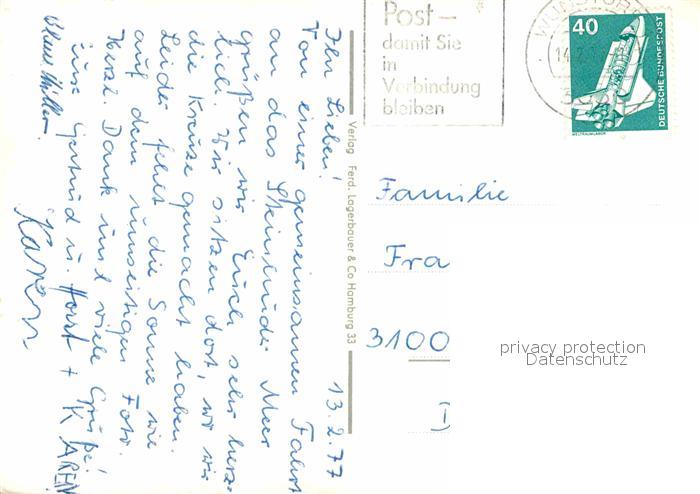 13.2.77
Ihr Lieben!
Von einer gemeinsamen Fahrt
an das Steinhuder Meer
grüßen wir Euch sehr herz-
lich. Wir sitzen dort, wo wir
die Kreuze gemacht haben.
Leider fehlt die Sonne wie
auf dem umseitigen Foto.
Herzl. Dank und viele Grüße!
Eure Gertrud u. Horst + KAREN
Karin
Verlag Ferd. Lagerbauer & Co Hamburg 33
Post –
damit Sie
in
Verbindung
bleiben
WUNSTORF
14.2.
40
DEUTSCHE BUNDESPOST
WELTRAUMLABOR
Familie
Fra
3100
privacy protection
Datenschutz